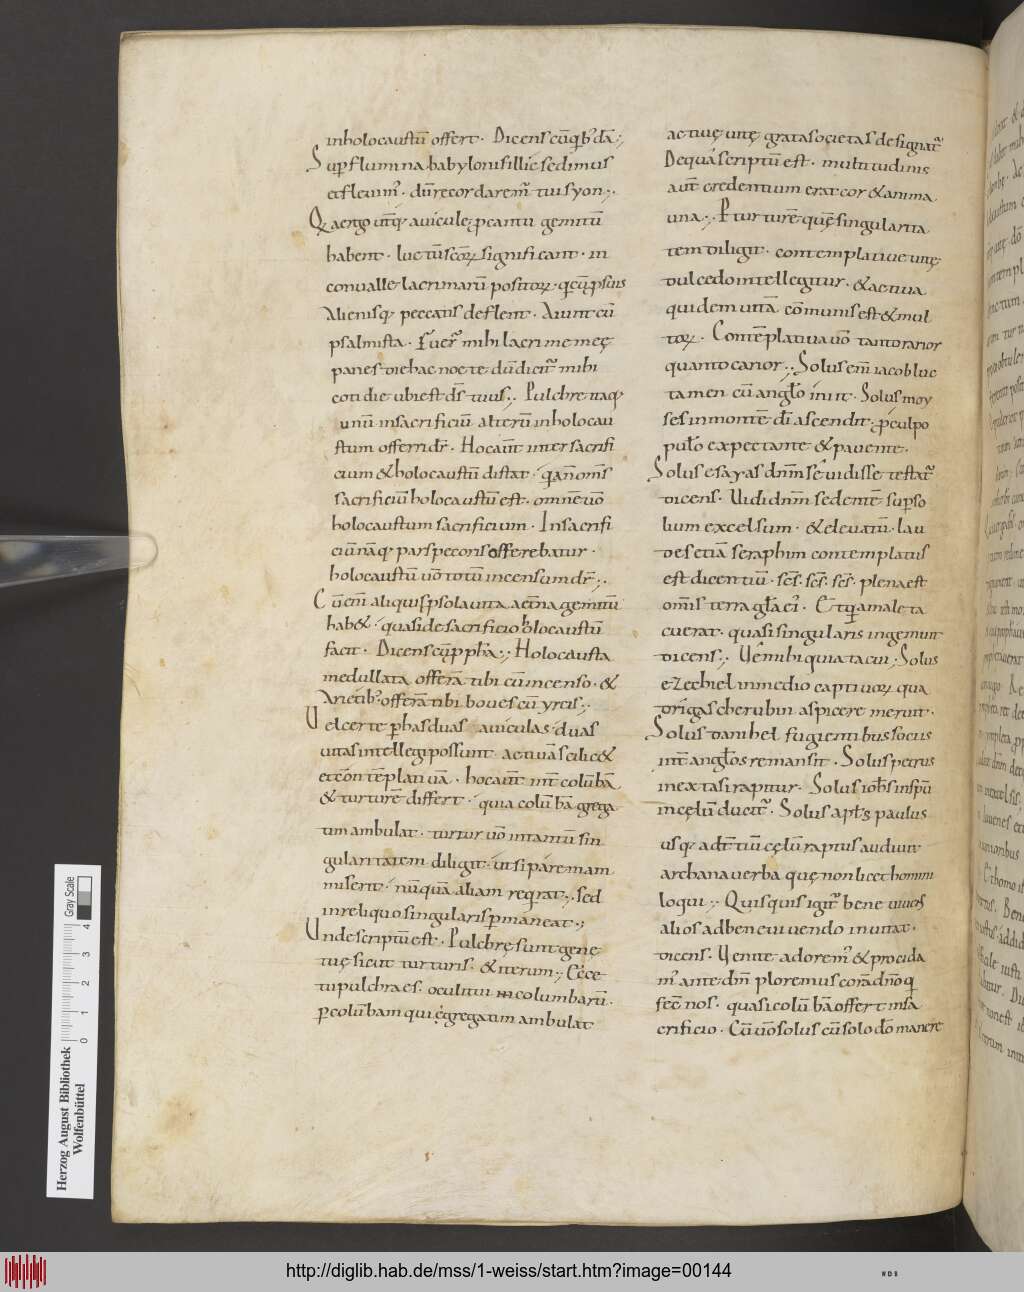 inholocaustū offert. Dicens cū quib; dā;
Sup flumina babylonis illic sedimus
et fleuim̃. dū recordaremur tui syon;
Quae ergo utrq; auiculę p cantu gemitū
habent. luctū scōrū significant. in
conualle lacrimarū positorum. qui cū p suis
Alienisq; peccatis deflent. Aiunt cū
psalmista. Fuer̃ mihi lacrimę meę
panes die hac nocte. dū dicit̃ mihi
cotidie ubi est dš tuus; Pulchre itaq;
unū insacrificiū alterū inholocau
stum offerri dr̃. Hoc aūt inter sacrifi
cium & holocaustū distat. quia non om̃s
sacrificiū holocaustū est. omne ūo
holocaustum sacrificium. In sacrifi
ciū nāq; pars pecoris offerebatur.
holocaustū ūo totū incensum dr̃;
Cū enī aliquis p sola uita aet̃na gemitū
hab&. quasi de sacrificio holocaustū
facit. Dicens cū pph̃a; Holocausta
medullata offerā tibi cū incenso. &
Arietib; offerā tibi boues cū yrcis;
Uel certe p has duas auiculas duas
uitas intellegi possunt. actiuā scilic&
et cōntēplatiuā. hoc aūt int̃ colūbā
& turturē differt. quia colūba grega
tim ambulat. turtur ūo in tantū sin
gularitatem diligit. ut si parē iam
miserit. nūquā aliam reqrat; sed
in reliquo singularis p maneat;
Unde scriptū est. Pulchrę sunt genę
tuę sicut turturis. & iterum; Ecce
tu pulchra es. oculi tui columbarū.
p colūbam qui ęgregatim ambulat
actiuę uitę grata societas designat̃
De qua scriptū est. multitudinis
aūt credentium erat cor & anima
una; P turturē quę singularita
tem diligit. contemplatiuę uitę
dulcedo intellegitur. & actiua
quidem uita cōmunis est & mul
torum. Contēplatiua ūo tanto rarior
quanto carior; Solus enī iacob luc
tamen cū angl̃o iniit. Solus moy
ses in montē dī ascendit. pcul po
pul̃o expectante & pauente.
Solus esayas dnm̃ se uidisse testat̃
dicens. Uidi dnm̃ sedentē sup so
lium excelsum. & eleuatū. lau
des etiā seraphim contemplatus
est dicentiū. sc̃s. sc̃s. sc̃s. plena est
om̃is terra gl̃a ei. Et qui amale ta
cuerat. quasi singularis ingemuit
dicens; Uę mihi quia tacui; Solus
ezechiel in medio captiuorum qua
drigas cherubin aspicere meruit.
Solus danihel fugientibus sociis
int̃ angl̃os remansit. Solus petrus
in extasi rapitur. Solus iohs̃ in spū
in cęlū ducit̃. Solus aptl̃s paulus
usq; ad t̃tiū cęlū raptus audiuit
archana uerba quę non licet homini
loqui; Quisquis igit̃ bene uiuens
alios ad bene uiuendo inuitat.
dicens. Uenite adorem̃ & procida
m̃ ante dm̃ ploremus corā dnō qui
fec̃ nos. quasi colūba offert in sa
crificio. Cū ūo solus cū solo dō manere
Herzog August Bibliothek
Wolfenbüttel
0 1 2 3 4
Gray Scale
http://diglib.hab.de/mss/1-weiss/start.htm?image=00144